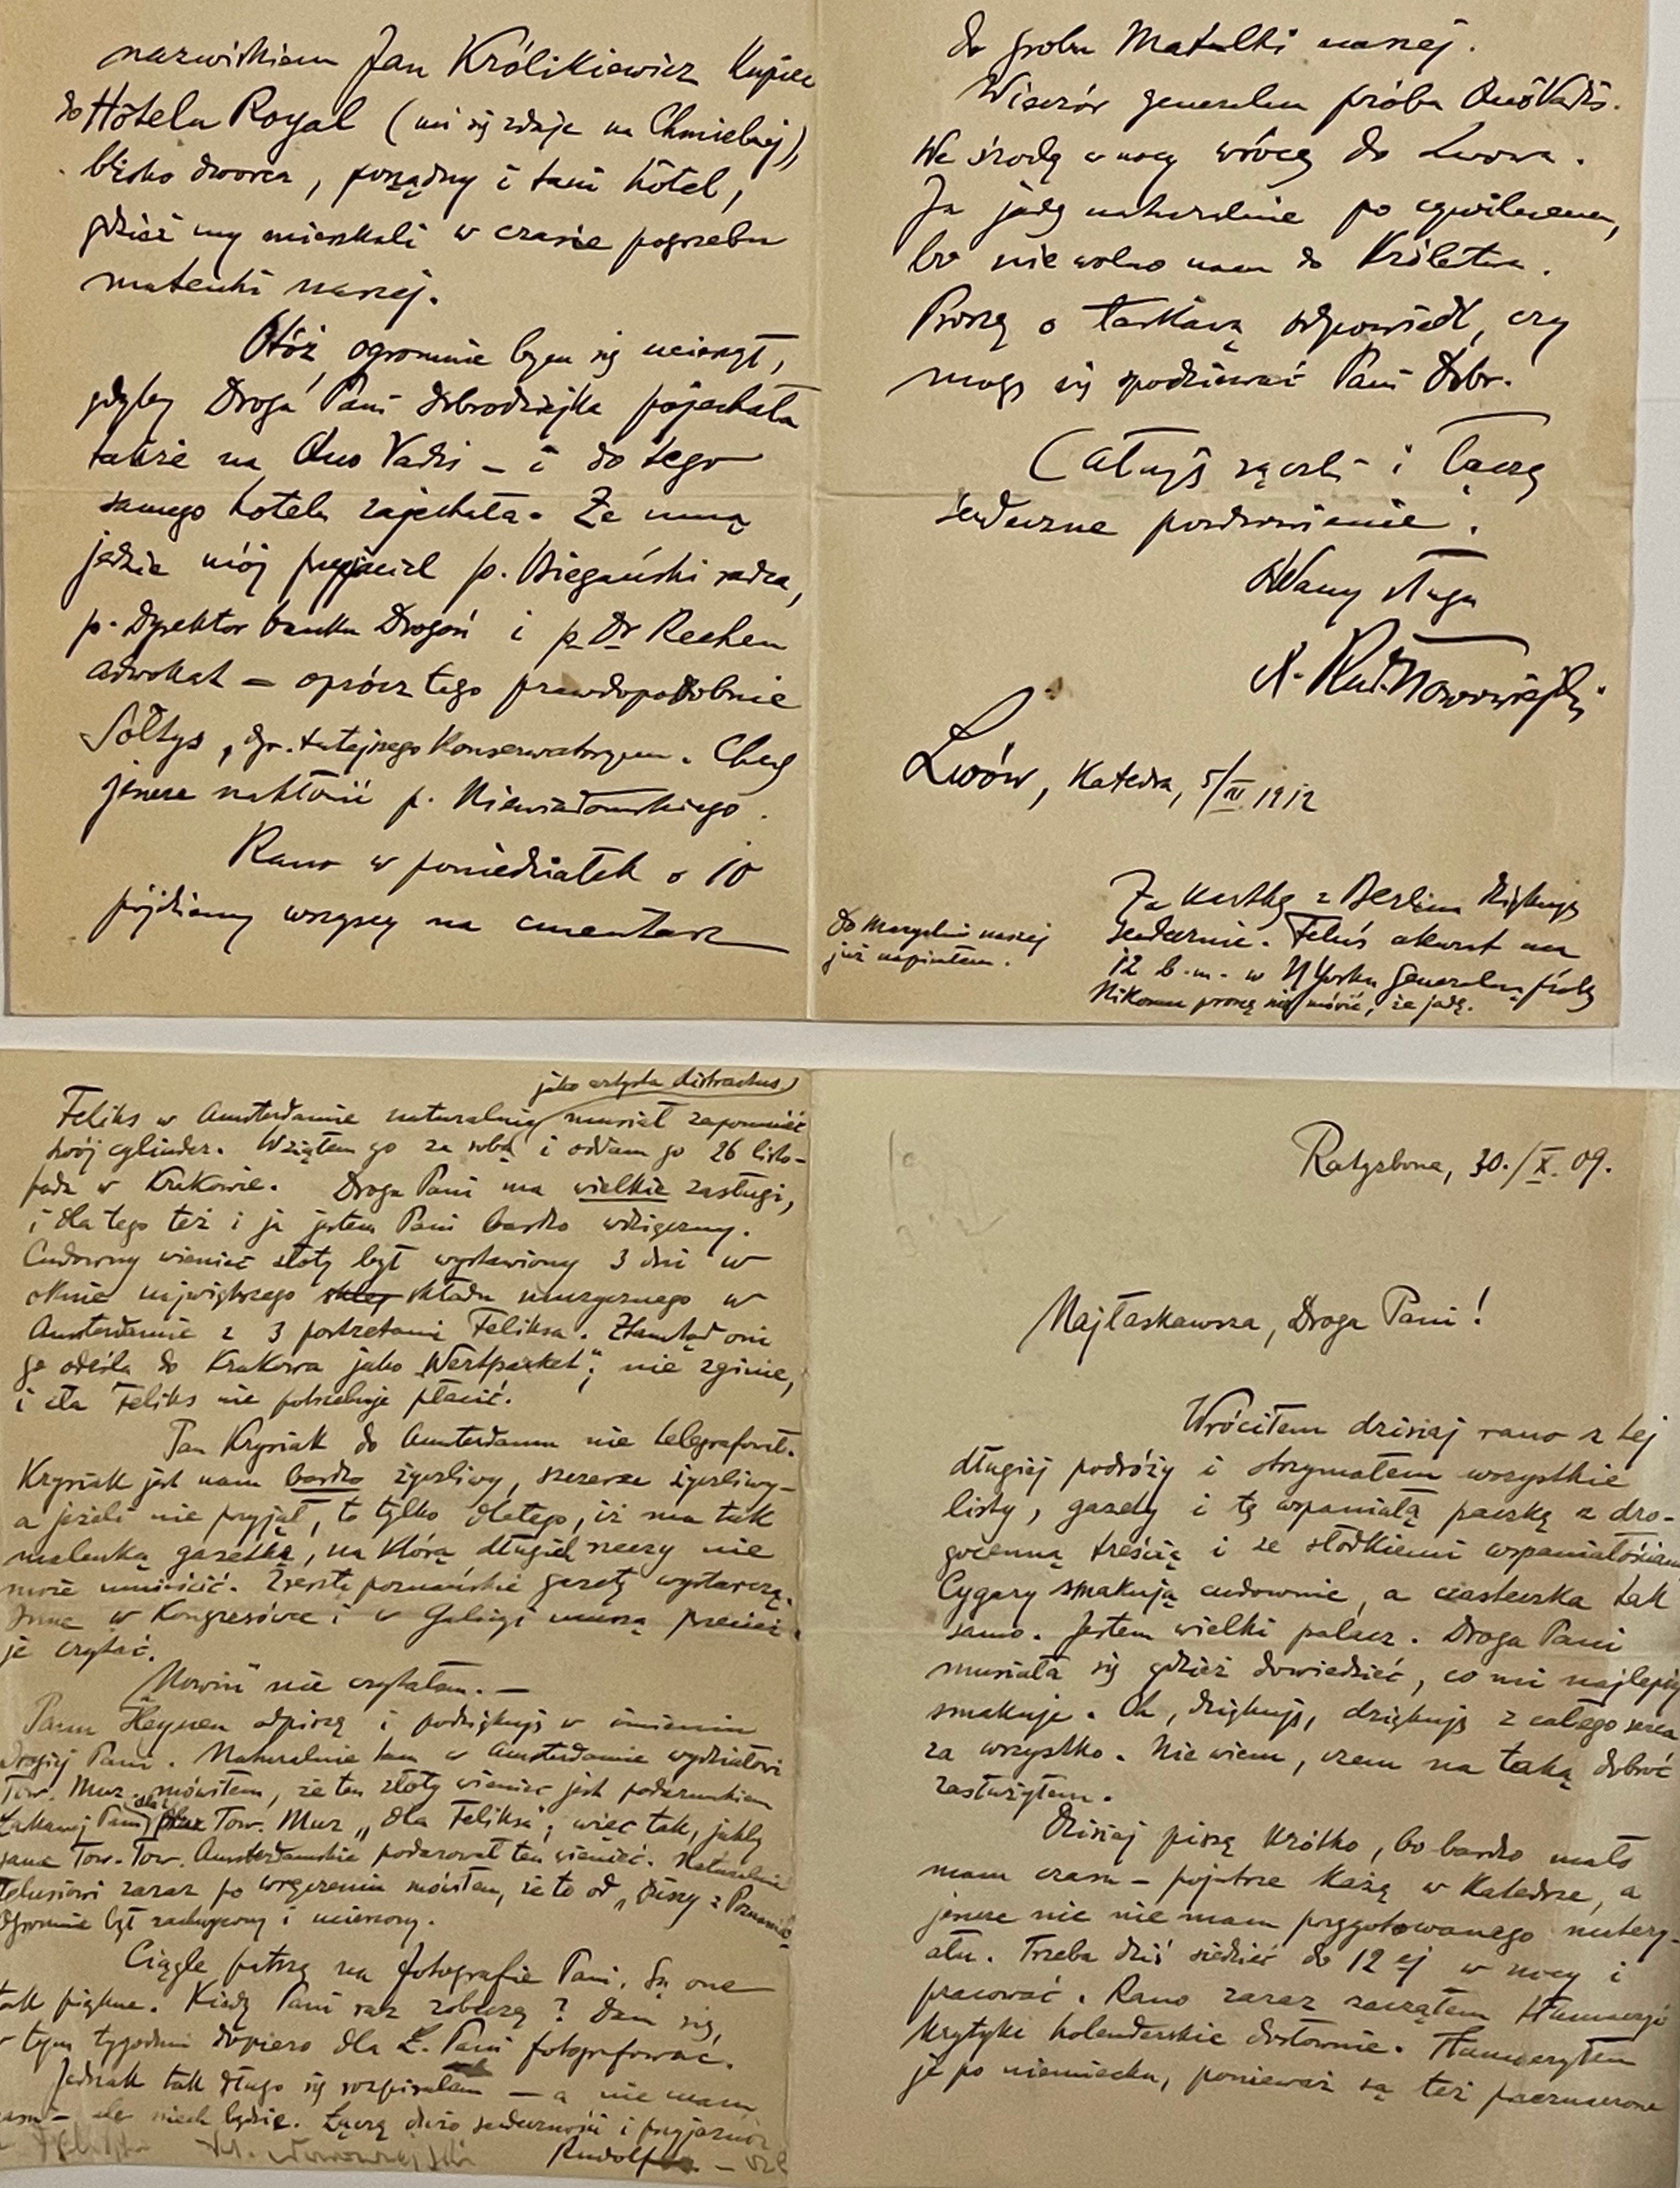 nazwiskiem Jan Królikiewicz kupiec
do Hôtelu Royal (mi się zdaje na Chmielnej),
blisko dworca, porządny i tani hôtel,
gdzieś my mieszkali w czasie pogrzebu
matenki naszej.
Otóż ogromnie bym się ucieszył,
gdyby Droga Pani Dobrodziejka pojechała
także na Quo Vadis – i do tego
samego hotelu zajechała. Ze mną
jedzie mój przyjaciel p. Biegański radca,
p. Dyrektor banku Drogoń i p. Dr Rechen
adwokat – oprócz tego prawdopodobnie
Sołtys, dyr. tutejszego Konserwatoryum. Chcę
jeszcze nakłonić p. Niewiadomskiego.
Rano w poniedziałek o 10
pójdziemy wszyscy na cmentarz
do grobu Matulki naszej.
Wieczór generalna próba Quo Vadis.
We środę w nocy wrócę do Lwowa.
Ja jadę naturalnie po cywilnemu,
bo nie wolno nam do Królestwa.
Proszę o łaskawą odpowiedź, czy
mogę się spodziewać Pani Dobr.
Całuję rączki i łączę
serdeczne pozdrowienie.
Oddany sługa
X. Rud. Nowowiejski
Lwów, Katedra, 5/IV 1912
Za kartkę z Berlina dziękuję
serdecznie. Feluś akurat ma
12 b.m. w N Yorku generalną próbę
Nikomu proszę nie mówić, że jadę.
do Marychni naszej
już napisałem.
jako artysta distractus
Feliks w Amsterdamie naturalnie musiał zapomnieć
swój cylinder. Wziąłem go za sobą i oddam go 26 listo-
pada w Krakowie. Droga Pani ma wielkie zasługi,
i dla tego też i ja jestem Pani bardzo wdzięczny.
Cudowny wieniec złoty był wystawiony 3 dni w
oknie największego sklep składu muzycznego w
Amsterdamie z 3 portretami Feliksa. Ztamtąd oni
go odeślą do Krakowa jako „Wertpacket”; nie zginie,
i cła Feliks nie potrzebuje płacić.
Pan Krysiak do Amsterdamu nie telegrafował.
Krysiak jest nam bardzo życzliwy, szczerze życzliwy –
a jeżeli nie przyjął, to tylko dlatego, iż ma tak
maleńką gazetkę, na którą długich rzeczy nie
może umieścić. Zresztą poznańskie gazety wystarczą.
Inne w Kongresówce i w Galicyi muszą przecież
je czytać.
„Nowin” nie czytałam. –
Panu Heynen odpiszę i podziękuję w imieniu
Drogiej Pani. Naturalnie tam w Amsterdamie wydziałowi
Tow. Muz. mówiłem, że ten złoty wieniec jest podarunkiem
Łaskawej Pani dla Tow. Muz „dla Feliksa”; więc tak, jakby
same Tow. Amsterdamskie podarował ten wieniec. Naturalnie
Felusiowi zaraz po wręczeniu mówiłem, że to od „Duszy z Poznania”
Ogromnie był zachwycony i ucieszony.
Ciągle patrzę na fotografie Pani. Są one
tak piękne. Kiedy Pani raz zobaczę? Dam się,
w tym tygodniu dopiero dla Ł. Pani fotografować.
Jednak tak długo się rozpisałem – a nie mam
czasu – ale niech będzie. Łączę dużo serdeczności i przyjaźni
Rudolf
Ratyzbona, 30./X. 09.
Najłaskawsza, Droga Pani!
Wróciłem dzisiaj rano z tej
długiej podróży i otrzymałem wszystkie
listy, gazety i tę wspaniałą paczkę z dro-
gocenną treścią i ze słodkiemi wspaniałościami
Cygary smakują cudownie, a ciasteczka tak
samo. Jestem wielki palacz. Droga Pani
musiała się gdzieś dowiedzieć, co mi najlepiej
smakuje. Oh, dziękuję, dziękuję z całego serca
za wszystko. Nie wiem, czem na taką dobroć
zasłużyłem.
Dzisiaj piszę krótko, bo bardzo mało
mam czasu – pojutrze każę w Katedrze, a
jeszcze nic nie mam przygotowanego matery-
ału. Trzeba dziś siedzieć do 12 ej w nocy i
pracować. Rano zaraz zacząłem tłumaczyć
krytyki holenderskie dosłownie. Tłumaczyłem
je po niemiecku, ponieważ są też przeznaczone